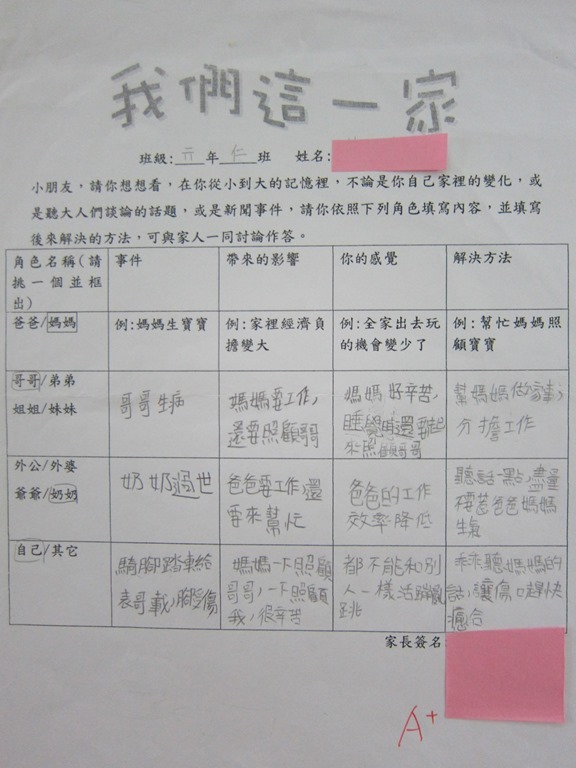 我們這一家
班級:六年仁班 姓名:
小朋友，請你想想看，在你從小到大的記憶裡，不論是你自己家裡的變化，或
是聽大人們談論的話題，或是新聞事件，請你依照下列角色填寫內容，並填寫
後來解決的方法，可與家人一同討論作答。
角色名稱(請
挑一個並框
出)
事件
帶來的影響
你的感覺
解決方法
爸爸/媽媽
例:媽媽生寶寶
例:家裡經濟負
擔變大
例:全家出去玩
的機會變少了
例:幫忙媽媽照
顧寶寶
哥哥/弟弟
姐姐/妹妹
哥哥生病
媽媽要工作，
還要照顧哥哥
媽媽好辛苦，
睡覺時還要起
來照顧哥哥
幫媽媽做家事，
分擔工作
外公/外婆
爺爺/奶奶
奶奶過世
爸爸要工作還
要來幫忙
爸爸的工作
效率降低
聽話一點，盡量
不要惹爸爸媽媽
生氣
自己/其它
騎腳踏車給
表哥載，腳受傷
媽媽一下照顧
哥哥，一下照顧
我，很辛苦
都不能和別
人一樣活蹦亂
跳
乖乖聽媽媽的
話，讓傷口趕快
癒合
家長簽名
A+